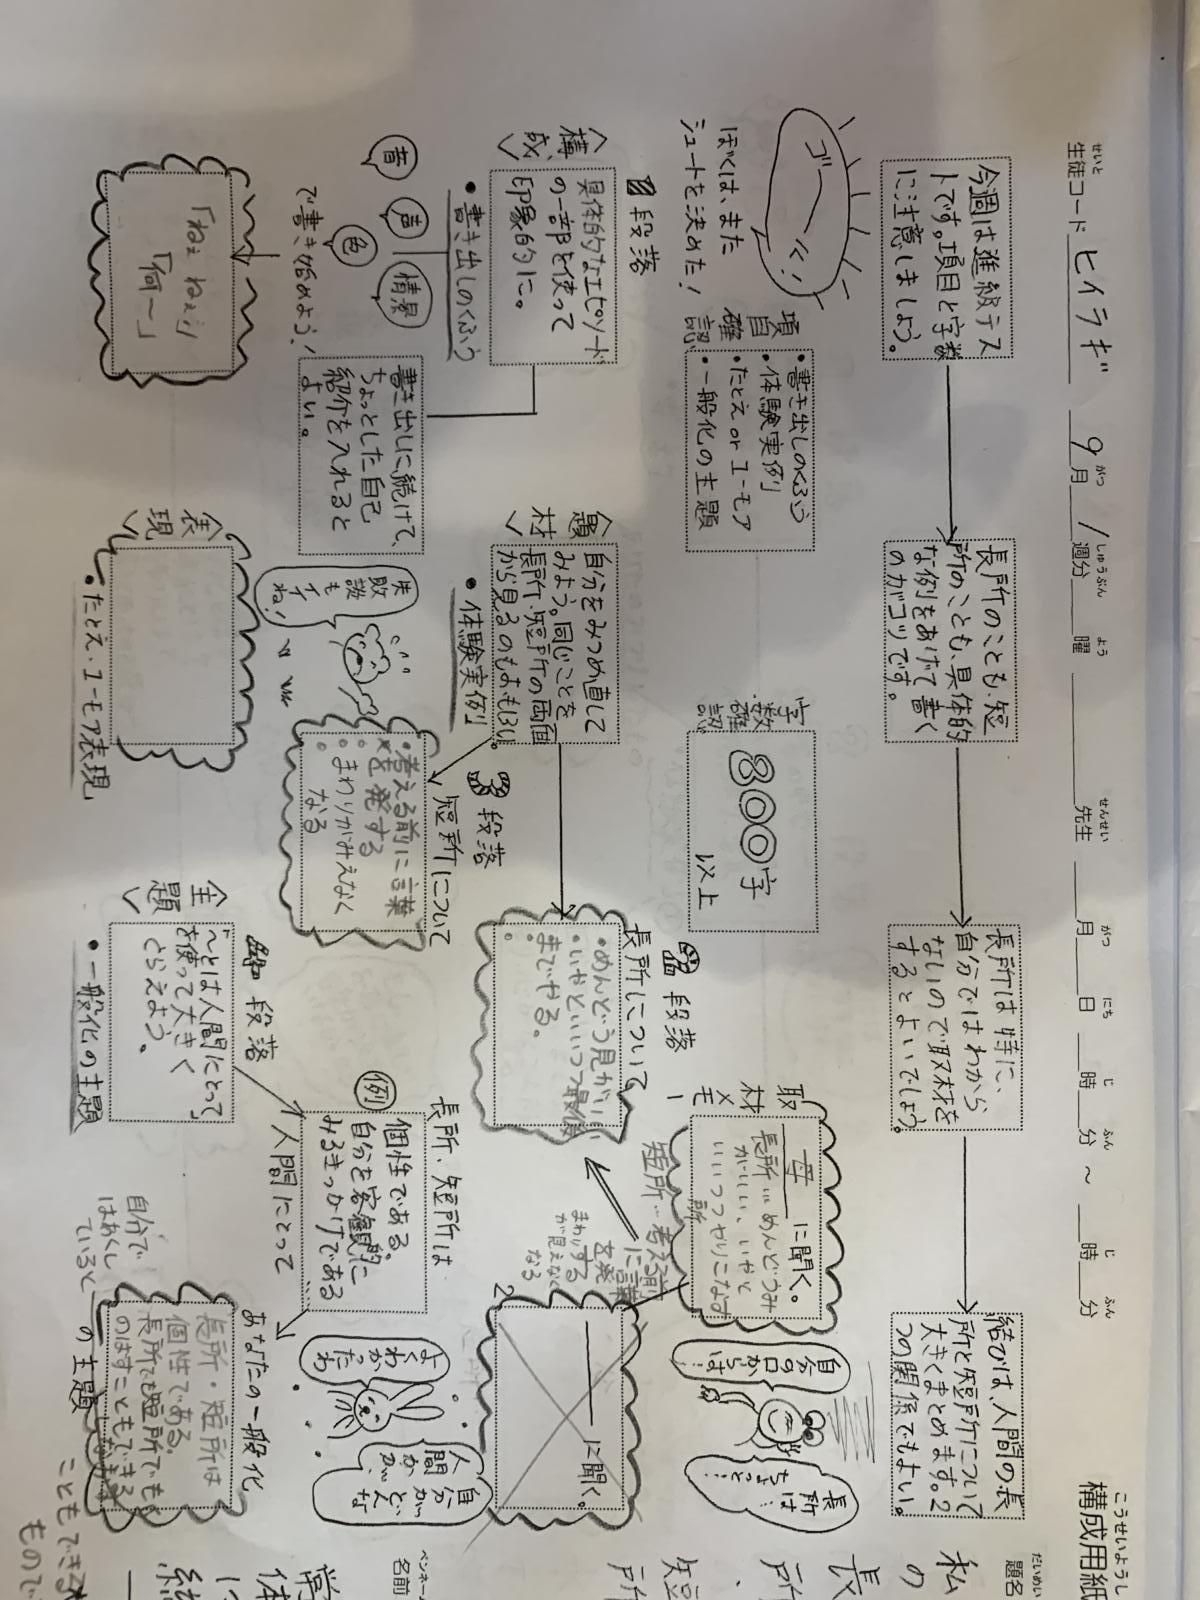 構成用紙
こうせいようし
せいと
生徒コード ヒイラギ 9月 1週分 曜 先生 月 日 時 分 ～ 時 分
がつ しゅうぶん よう せんせい がつ にち じ ふん じ ふん
だいめい
題名
私の
長所、
短所
ペンネーム
名前
今週は進級テス
トです。項目と字数
に注意しましょう。
長所のことも、短
所のことも、具体的
な例をあげて書く
のがコツです。
長所は特に、
自分ではわから
ないので取材を
するとよいでしょう。
結びは、人間の長
所と短所について
大きくまとめます。2
つの関係でもよい。
ゴーール！
ぼくは、また
シュートを決めた！
項目確認
・書き出しのくふう
・体験実例
・たとえ or ユーモア
・一般化の主題
字数確認
800字
以上
取材メモ
母に聞く。
長所…めんどうみ
がいい、いやと
いいつつやりこなす
短所…考える前
に言葉
を発する
まわり
が見えなく
なる
自分の口からは…
長所は
ちょっと…
2
に聞く。
〈構成〉
段落
具体的なエピソード
の一部を使って
印象的に。
・書き出しのくふう
音
声
色
情景
で書き始めよう！
「ねぇ ねぇ」
「何～」
書き出しに続けて、
ちょっとした自己
紹介を入れると
よい。
〈題材〉
自分をみつめ直して
みよう。同じことを
長所・短所の両面
から見るのもおもしろい。
・体験実例
段落
長所について
・めんどう見がいい
・いやといいつつ最後
までやる。
段落
短所について
・考える前に言葉
を発する
・まわりがみえなく
なる
失敗談もイイね！
〈表現〉
・たとえ・ユーモア表現
〈主題〉
段落
「～とは人間にとって」
を使って大きく
とらえよう。
・一般化の主題
長所・短所は
例
個性である
自分を客観的に
みるきっかけである
人間にとって
よくわかったわ
自分がどんな
人間かが
あなたの一般化
の主題
長所・短所は
個性である。
長所でも短所でも
のばすこともできる
自分で
はあくし
ていると
こともできる
もので